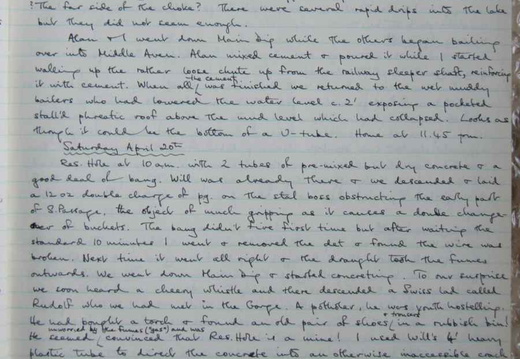 ? The far side of the choke? There were several rapid drips into the lake
but they did not seem enough.
Alan & I went down Main Dig while the others began bailing
over into Middle Aven. Alan mixed cement & poured it while I started
walling up the rather loose chute up from the railway sleeper shaft, reinforcing
it with cement. When all the cement was finished we returned to the wet muddy
bailers who had lowered the water level c. 2' exposing a pocketed
stal'd phreatic roof above the mud level which had collapsed. Looks as
though it could be the bottom of a U-tube. Home at 11.45 pm.
Saturday April 20th
Res. Hole at 10 am. with 2 tubes of pre-mixed but dry concrete & a
good deal of bang. Will was already there & we descended & laid
a 12 oz. double charge of pg. on the stal boss obstructing the early part
of 8. Passage, the object of much griping as it causes a double change
over of buckets. The bang didn't fire first time but after waiting the
standard 10 minutes I went & removed the det & found the wire was
broken. Next time it went all right & the draught took the fumes
outwards. We went down Main Dig & started concreting. To our surprise
we soon heard a cheery whistle and there descended a Swiss lad called
Rudolf who we had met in the Gorge. A potholer, he was youth hostelling.
He had bought a torch & found an old pair of shoes & trousers in a rubbish bin!
He seemed unworried by the fumes ("gas") and was convinced that Res. Hole is a mine! I used Will's 4' heavy
plastic tube to direct the concrete into an otherwise inaccessible crack